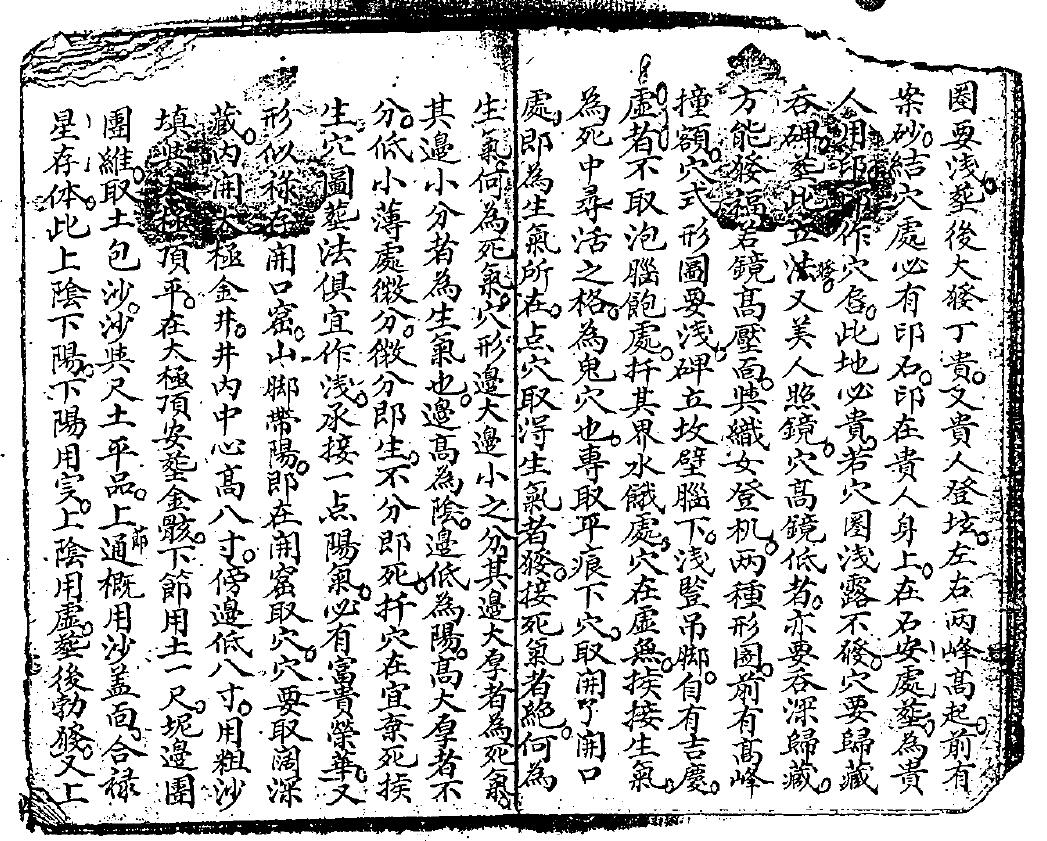 圏要浅葬。後大發丁貴。又貴人登坛。左右两峰高起。前有
案砂。結穴處必有印石。印在貴人身上。在石安處葬。為貴
人用印。即作穴官。此地必貴。若穴圏浅露不發。穴要歸藏
吞碑葬。此立法發。又美人照鏡。穴高鏡低者。亦要吞深歸藏。
方能發福。若鏡高壓面。與織女登机。两種形圖。前有高峰
撞額。穴式形圖要浅。碑立坟壁腦下。浅竪吊脚。自有吉慶。
虛者不取泡腦飽處。扦其界水餓處。穴在虛無。挨接生氣。
為死中尋活之格。為鬼穴也。專取平痕下穴。取開了開口
處。即為生氣所在。点穴取淂生氣者發。接死氣者絕。何為
生氣。何為死氣。穴形邊大邊小之分。其邊大厚者為死氣。
其邊小分者為生氣也。邊高為陰。邊低為陽。高大厚者不
分。低小薄處微分。微分即生。不分即死。扦穴在宜棄死挨
生穴圖葬法俱宜作浅。承接一点陽氣。必有富貴榮華。又
形似祿存開口窩。山脚帶陽。即在開窩取穴。穴要取阔深
藏。内開太極金井。井内中心高八寸。傍邊低八寸。用粗沙
填與太極頂平。在太極頂安葬金骸。下節用土一尺坭邊團
團維取土包沙。沙與尺土平品。上節通概用沙盖面。合祿
星存体。此上陰下陽。下陽用实。上陰用虛。葬後勃發。又上